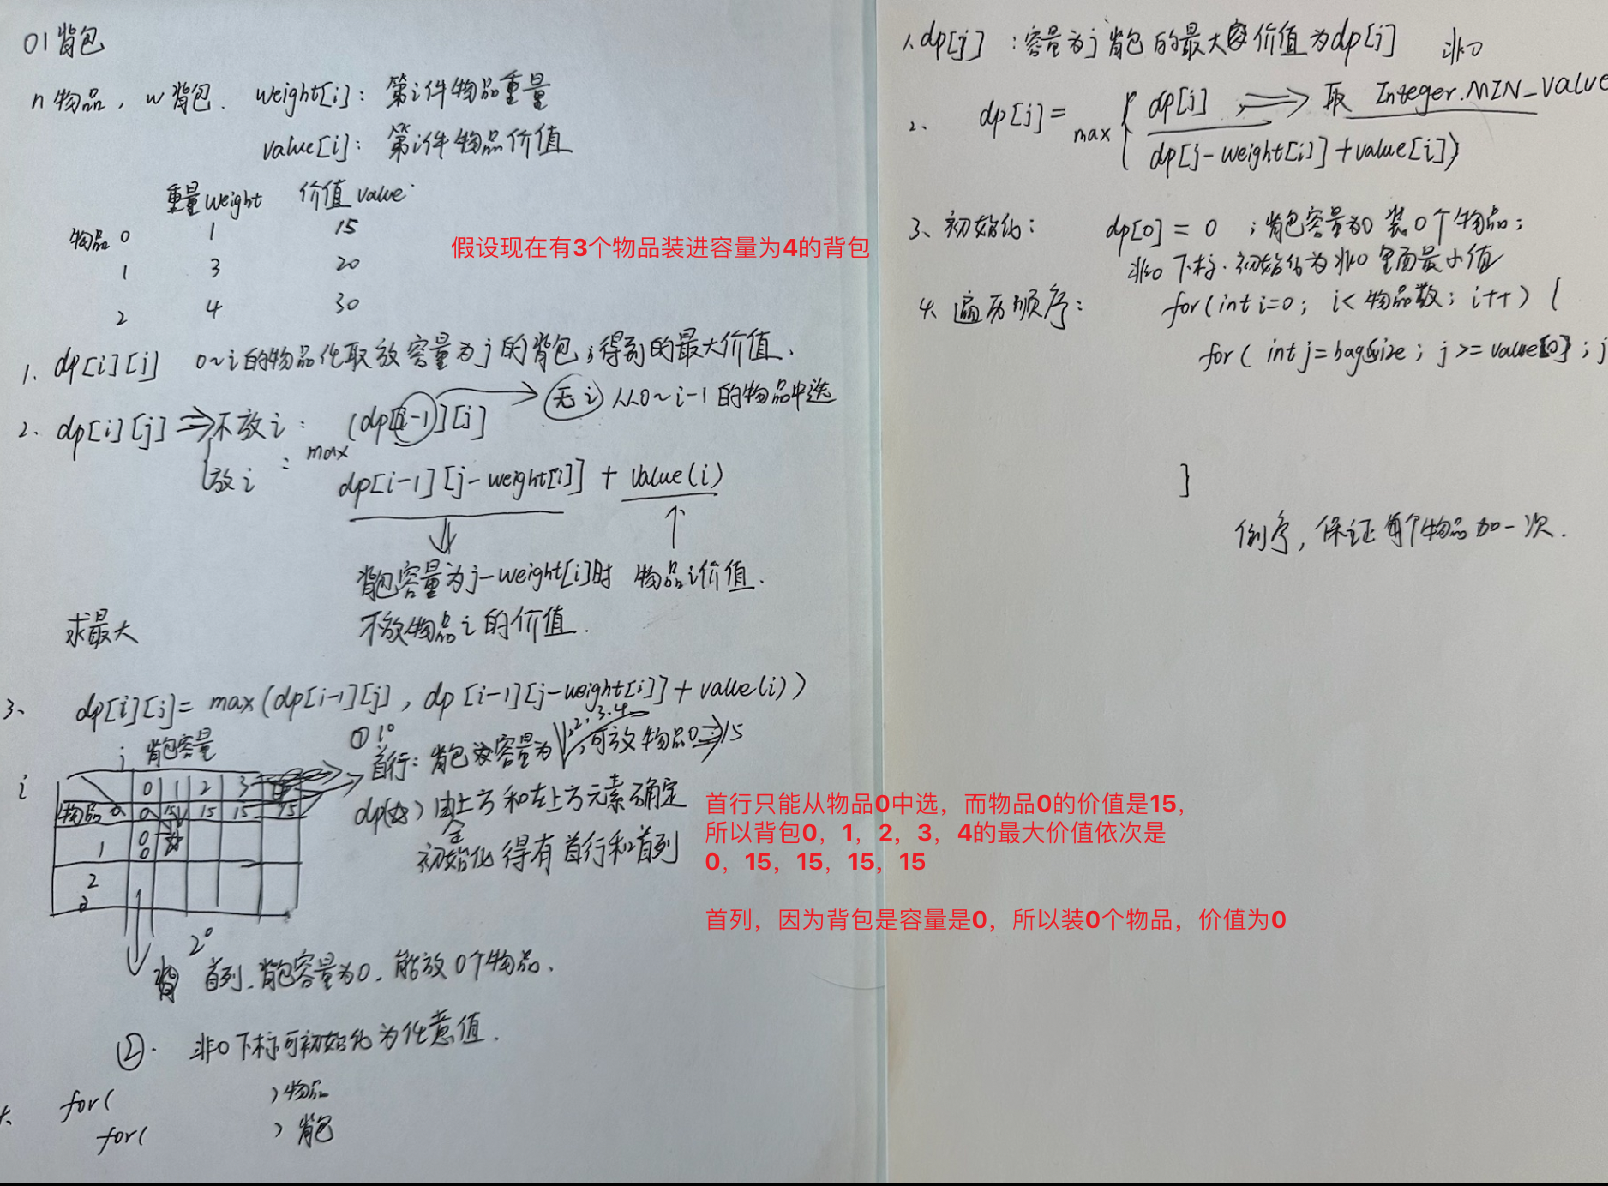 01背包
n物品，w背包． weight[i]：第i件物品重量
value[i]：第i件物品价值
重量weight 价值value
物品0 1 15
1 3 20
2 4 30
假设现在有3个物品装进容量为4的背包
1. dp[i][j] 0~i的物品任取放容量为j的背包，得到的最大价值．
2. dp[i][j] ⇒ 不放i： (dp[i-1][j] 无i 从0~i-1的物品中选
放i： max dp[i-1][j-weight[i]] + value(i)
背包容量为j-weight[i]时 物品i价值．
不放物品i的价值．
求最大
3、 dp[i][j]= max(dp[i-1][j], dp[i-1][j-weight[i]]+value(i))
j 背包容量
① 1° 首行：背包容量为1,2,3,4 可放物品0⇒15
i
0 1 2 3
物品0 0 15 15 15 15
1 0
2
dp 由上方和左上方元素确定
初始化得有首行和首列
首行只能从物品0中选，而物品0的价值是15，
所以背包0，1，2，3，4的最大价值依次是
0，15，15，15，15
首列，因为背包是容量是0，所以装0个物品，价值为0
2° 首列．背包容量为0．能放0个物品．
②． 非0下标可初始化为任意值．
4. for( )物品
for( )背包
1. dp[j]：容量为j背包的最大价值为dp[j] 非0
2. dp[j]= max { dp[j] ⇒ 取 Integer.MIN_VALUE
dp[j-weight[i]]+value[i])
3、初始化： dp[0] = 0 ；背包容量为0 装0个物品；
非0下标．初始化为非0里面最小值
4. 遍历顺序： for(int i=0; i<物品数; i++) {
for( int j=bagsize; j>=value[0]; j
}
倒序，保证每个物品加一次．